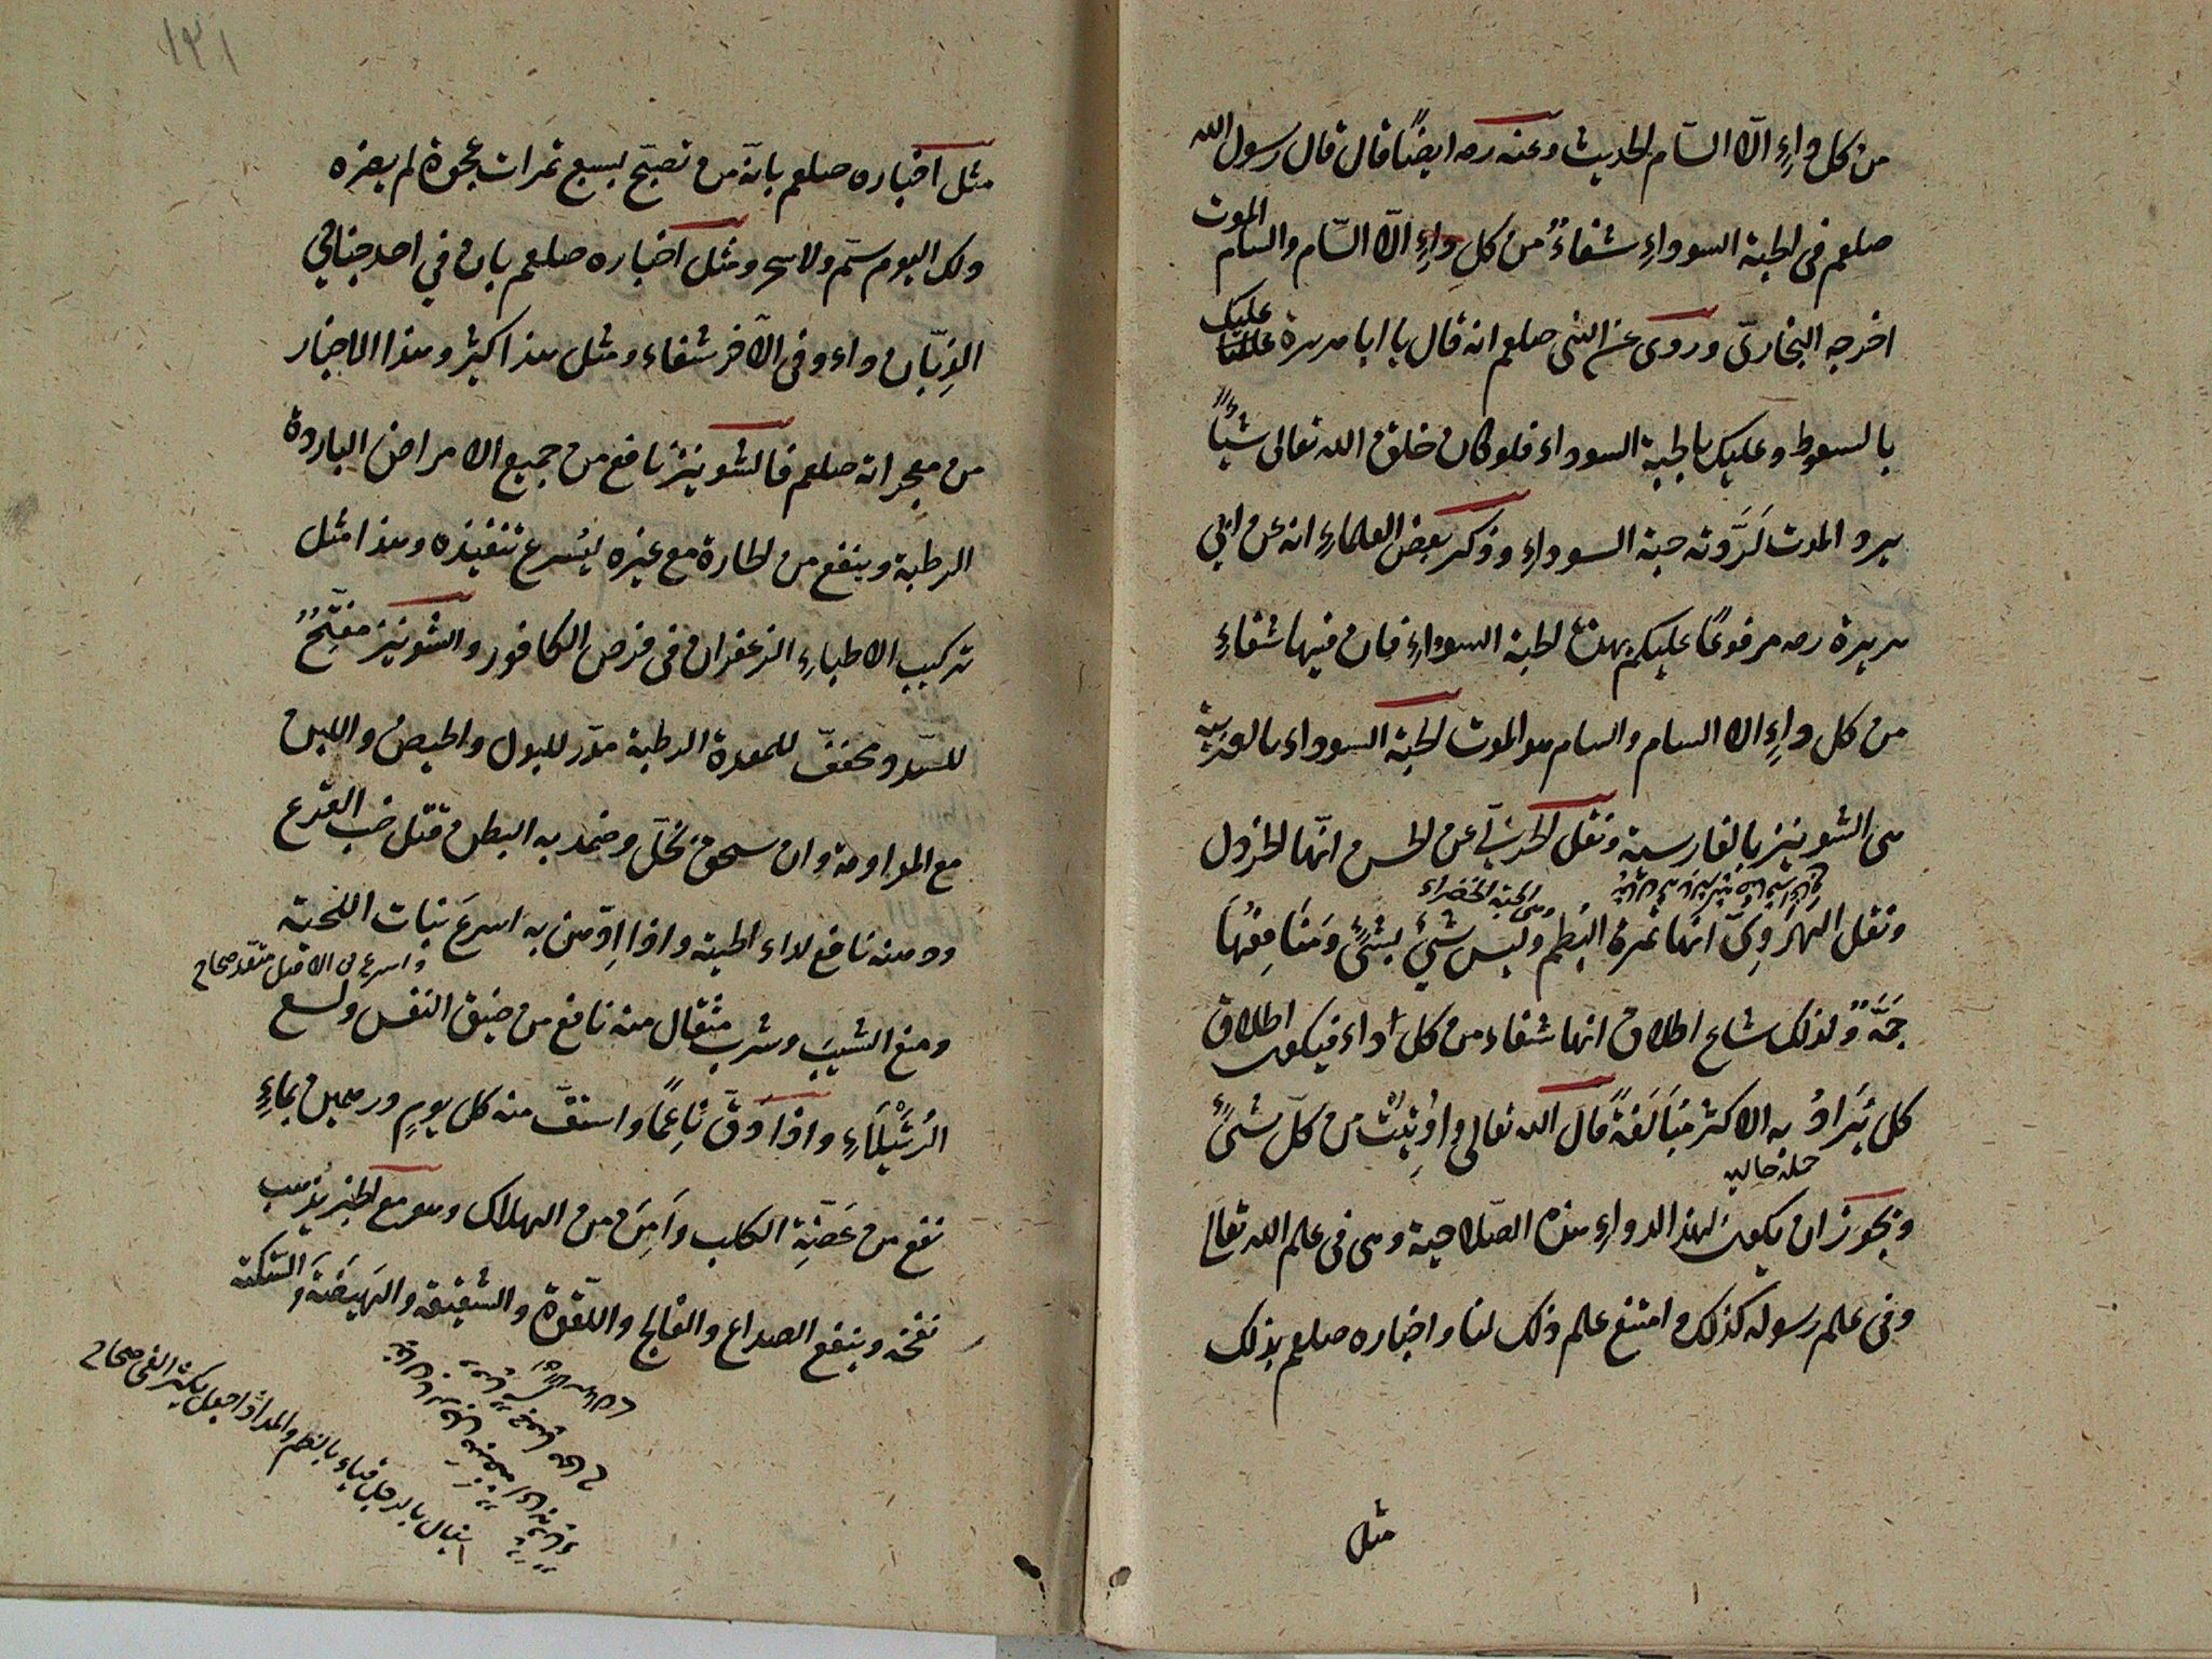 من كل داءٍ الّا السّام الحديث وعنه رصه ايضًا قال قال رسول الله
صلعم فى الحبة السوداءِ شفاءٌ من كل داءٍ الّا السّام والسام الموت
اخرجه البخارىّ وروى عن النبى صلعم انه قال يا ابا هريرة عليك
بالسعوط وعليك بالحبة السوداء فلو كان خلق الله تعالى شيئًا
يرد الموت لَرَدَّته حبة السوداءِ وذكر بعض العلماءِ انه عن ابى
هريرة رصه مرفوعًا عليكم بهذه الحبة السوداءِ فان فيها شفاءً
من كل داءٍ الا السام والسام هو الموت الحبة السوداء بالعربية
هى الشونيز بالفارسية ونقل الحربىّ عن الحسن انّها الخردل
وهى الحبة الخضراء
ونقل الهَرَوِىّ انها ثمرة البُطم وليس شئٌ بشئٍ وَمَنَافِعُهَا
جَمَّةٌ ولذلك شاع اطلاق انها شفاء من كل داء فيكون اطلاق
كل يُرَادُ به الاكثر مُبَالَغَةً قال الله تعالى واُوتِيَتْ من كلّ شئٍ
جملة حالية
ويجوز ان يكون لهذا الدواءِ هذه الصّلاحية وهى فى علم الله تعالى
وفى علم رسوله كذلك وامتنع علم ذلك لنا واخباره صلعم بذلك
مثل
١٣١
مثل اخباره صلعم بانّه من تصبّح بسبع تمرات عجوة لم يضره
ذلك اليوم سّم ولا سحر ومثل اخباره صلعم بان فى احد جناحى
الذِبّان داء وفى الآخر شفاء ومثل هذا كثير وهذا الاخبار
من معجزاته صلعم فالشونيز نافع من جميع الامراض الباردة
الرطبة وينفع من الحارة مع غيره ليُسرع تنفيذه وهذا مثل
تركيب الاطباءِ الزعفران فى قرص الكافور والشونيز مفتِّحٌ
للسّدد ومجففّ للمعدة الرطبة مدّر للبول والحيض واللبن
مع المداومة وان سحق بخلّ وضمد به البطن قتل حب القرع
ودهنه نافع لداء الحية واذا ادّهن به اسرعَ نبات اللحية
واسرع فى الاصل متعّد صحاح
ومنع الشيبَ وشرب مثقال منه نافع من ضيق النفس ولسع
الرُتَيْلَاءِ واذا دُقّ نَاعِمًا واستفّ منه كل يومٍ درهمين بماءٍ
نفع من عَضَّةِ الكلب وأَمِنَ من الهلاك وهو مع الخبز يذهب
نفخه وينفع الصداع والفالج واللقوة والشقيقه والهَيضَةَ والسَّكتة